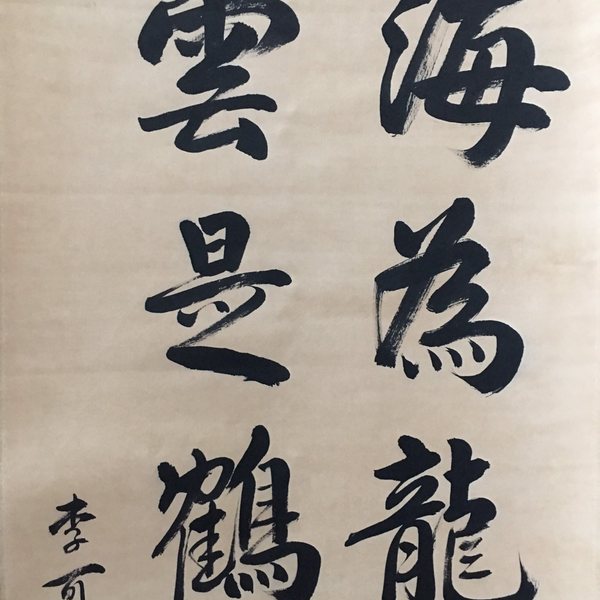 海為龍
雲是鶴
李可